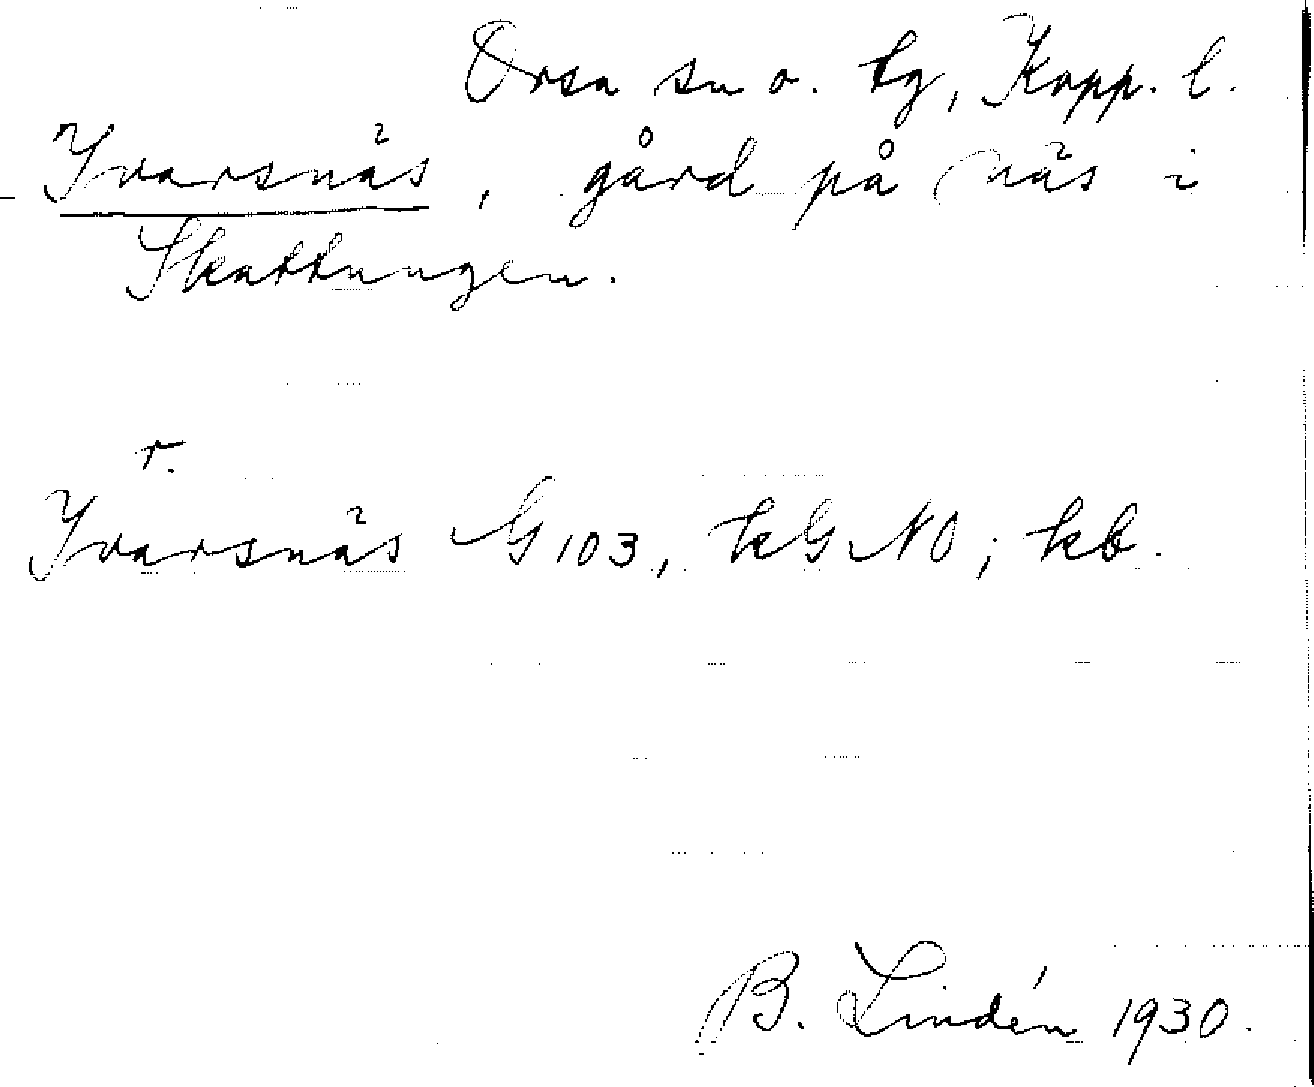 Orsa sn o. tg, Kopp. l.
Ivarsnäs, gård på näs i
Skattungen.
r.
Ivarsnäs G 103, kGNO; kb.
B. Lindén 1930.